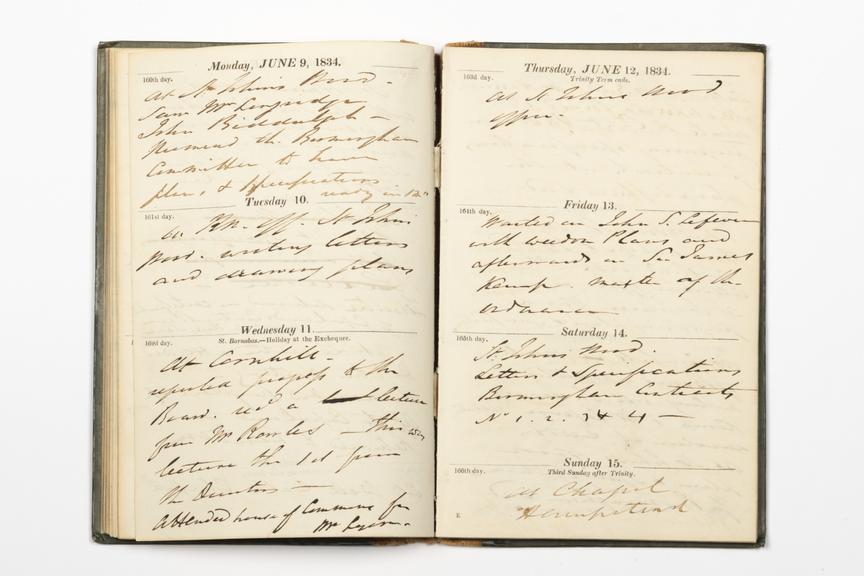 Monday, JUNE 9, 1834.
160th day.
at St Johns Wood -
Saw Mr
John Biddulph -
the Birmingham
Committee to have
plans & specifications
ready in
Tuesday 10.
161st day.
at off. St Johns
Wood. writing letters
and drawing plans
Wednesday 11.
St. Barnabas.—Holiday at the Exchequer.
162d day.
At Cornhill -
reported progress to the
Board. rec'd a lecture
from Mr Rowles - this
lecture the 1st from
the Directors -
Attended house of Commons for
Mr
Thursday, JUNE 12, 1834.
Trinity Term ends.
163d day.
at St Johns Wood
office.
Friday 13.
164th day.
Waited on John S. Lefevre
with Weedon Plans and
afterwards on Sir James
Kemp. master of the
ordnance
Saturday 14.
165th day.
St Johns Wood.
Letters & Specifications
Birmingham Contracts
No 1. 2. 3 & 4 -
Sunday 15.
Third Sunday after Trinity.
166th day.
at Chapel
Hempstead